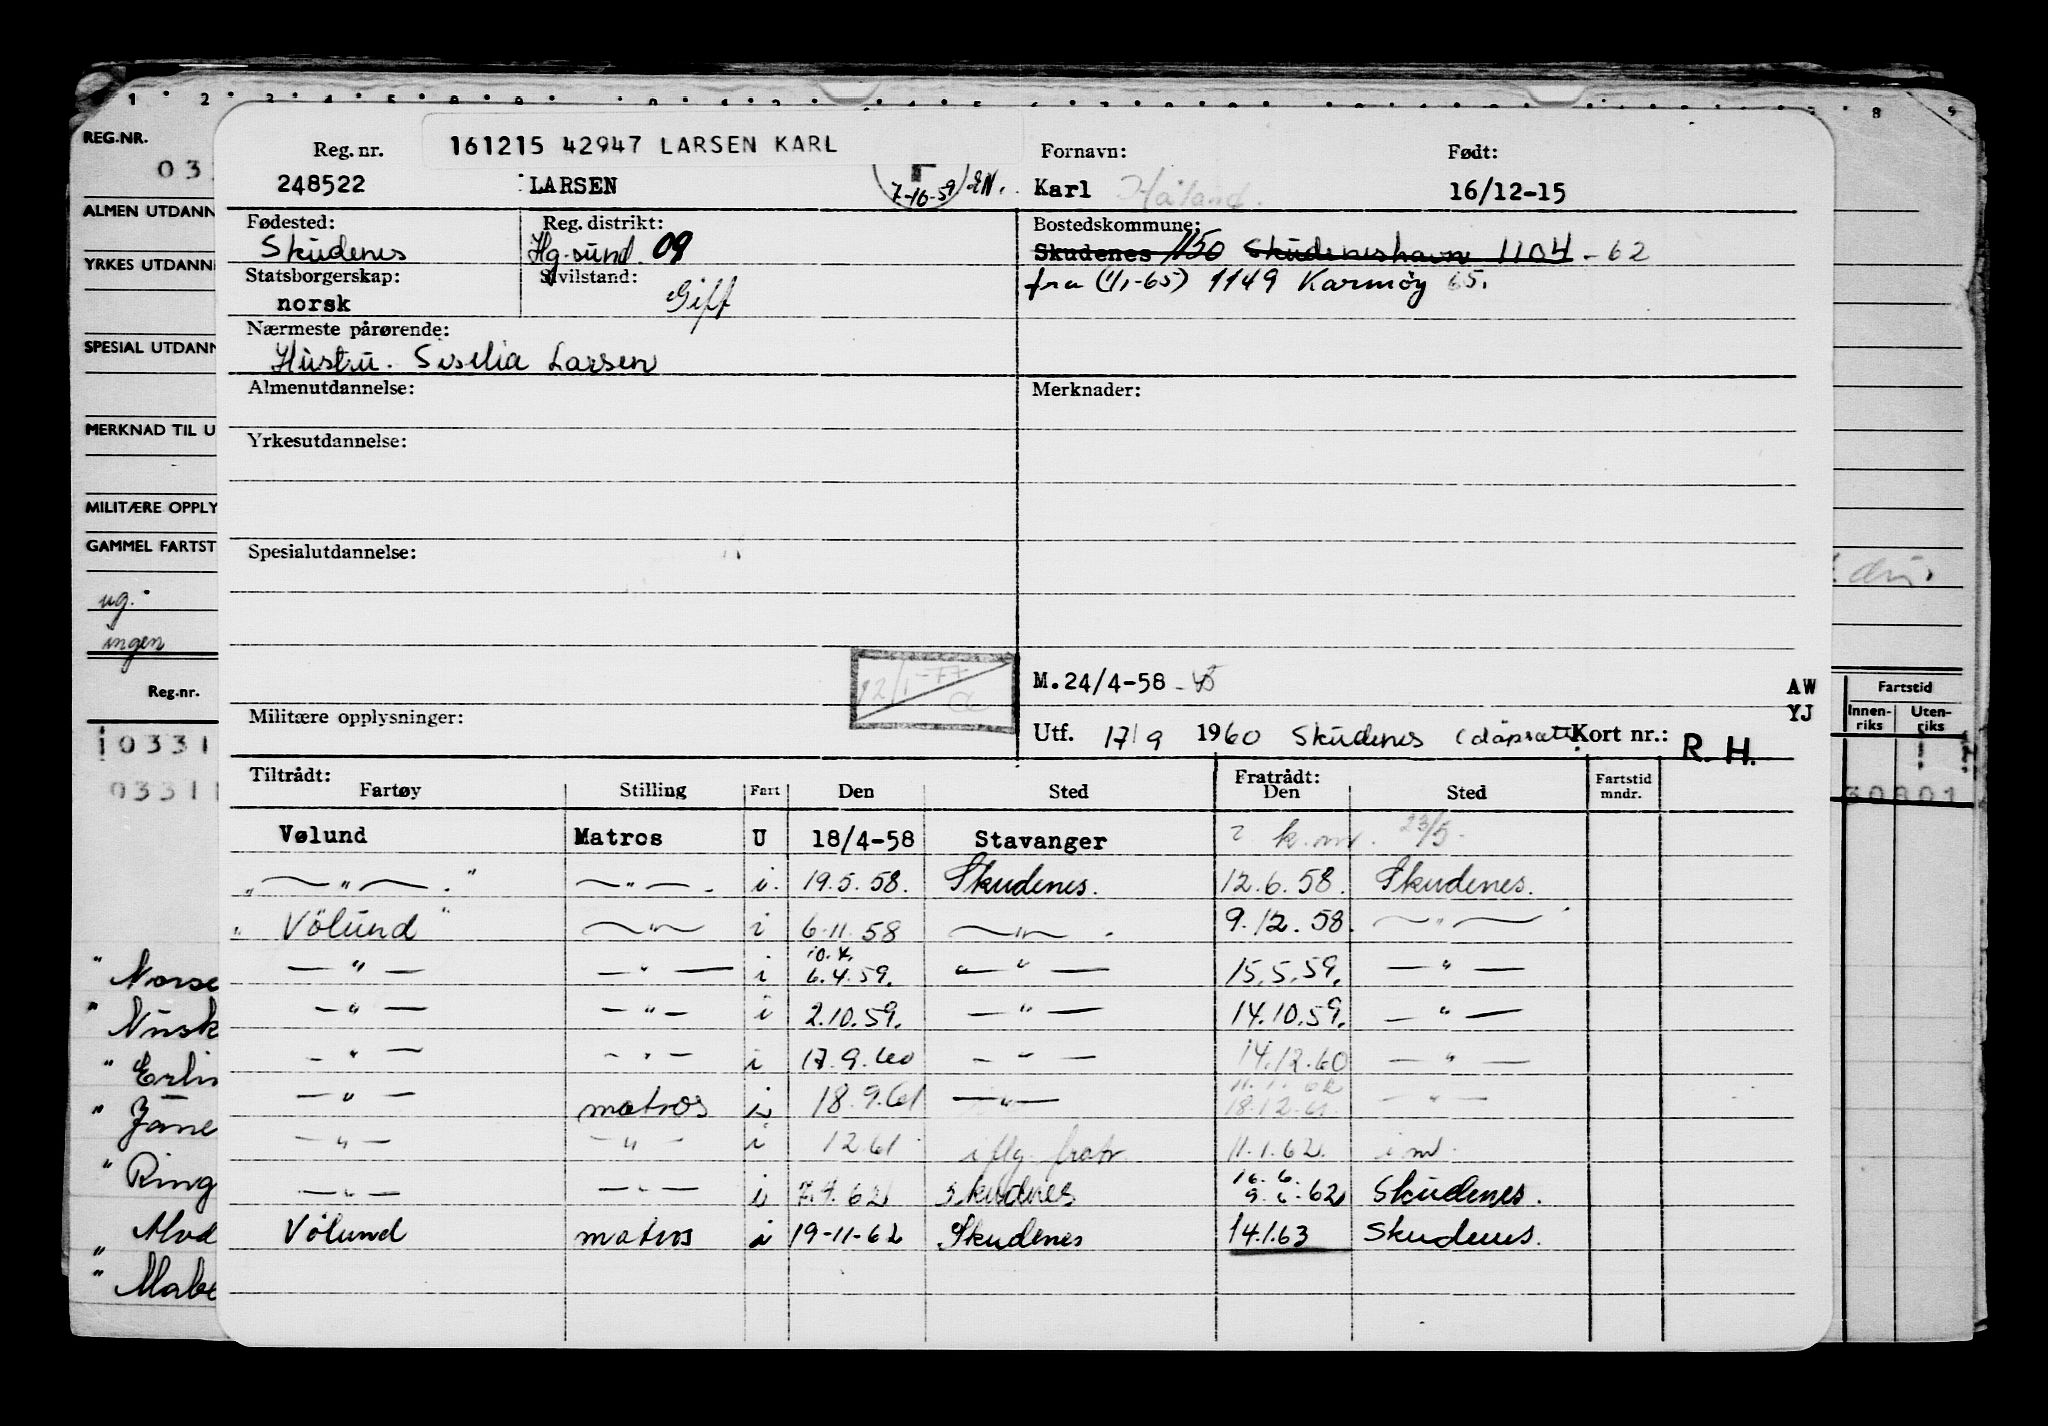 1 2 3 4 5 8 9
REG.NR.
03
ALMEN UTDANN
YRKES UTDANN
SPESIAL UTDANN
MERKNAD TIL U
MILITÆRE OPPLY
GAMMEL FARTST
ug.
ingen
Reg.nr.
0331
0331
" Norse
" Nusk
" Erlin
" Jane
" Ring
Alvd
" Mabe
Reg. nr. 161215 42947 LARSEN KARL Fornavn: Født:
248522 LARSEN 7-10-59 EN. Karl Håland. 16/12-15
Fødested: Reg. distrikt: Bostedskommune:
Skudenes Hg.sund. 09 Skudenes 1150 Skudeneshavn 1104 - 62
Statsborgerskap: Sivilstand: fra (1/1-65) 1149 Karmøy 65.
norsk Gift
Nærmeste pårørende:
Hustru. Siselia Larsen
Almenutdannelse: Merknader:
Yrkesutdannelse:
Spesialutdannelse:
12/1-77
M.24/4-58 AW
YJ
Militære opplysninger: Utf. 17/9 1960 Skudenes Kort nr.: R. H.
Tiltrådt: Fratrådt:
Fartøy Stilling Fart Den Sted Den Sted Fartstid mndr.
Vølund Matros U 18/4-58 Stavanger ? k.m. 23/5.
" — " — . " — " — . i. 19.5.58. Skudenes. 12.6.58. Skudenes.
" Völund " — " — i 6.11.58 — " — . 9.12.58. — " —
10.4.
— " — — " — i 6.4.59. — " — 15.5.59. — " —
— " — — " — i 2.10.59. — " — 14.10.59. — " —
— " — — " — i 17.9.60 — " — 14.12.60 — " —
11.1.62
— " — matros i 18.9.61 — " — 18.12.61. — " —
— " — — " — i 12 61 iflg. fratr. 11.1.62. i m.
16.6.
— " — — " — i 7.4.62 Skudnes 9.6.62 Skudenes.
Völund matros i 19-11-62 Skudenes 14.1.63 Skudenes.
8 9
Fartstid
Innen-riks Uten-riks
30801